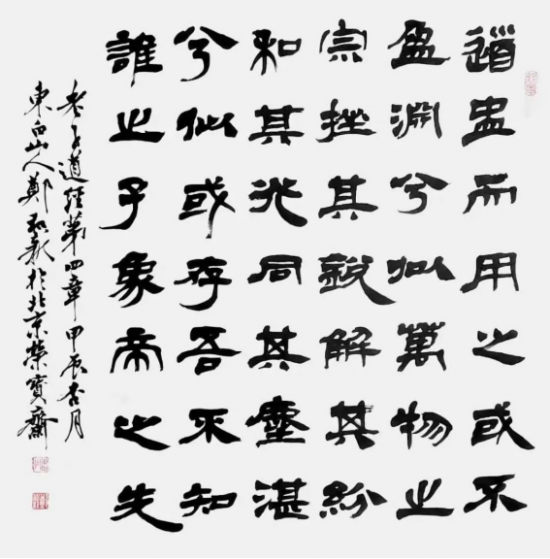 道盅而用之或不
盈淵兮似萬物之
宗挫其銳解其紛
和其光同其塵湛
兮似或存吾不知
誰之子象帝之先
老子道經第四章甲辰杏月
東白山人鄭和於北京榮寶齋